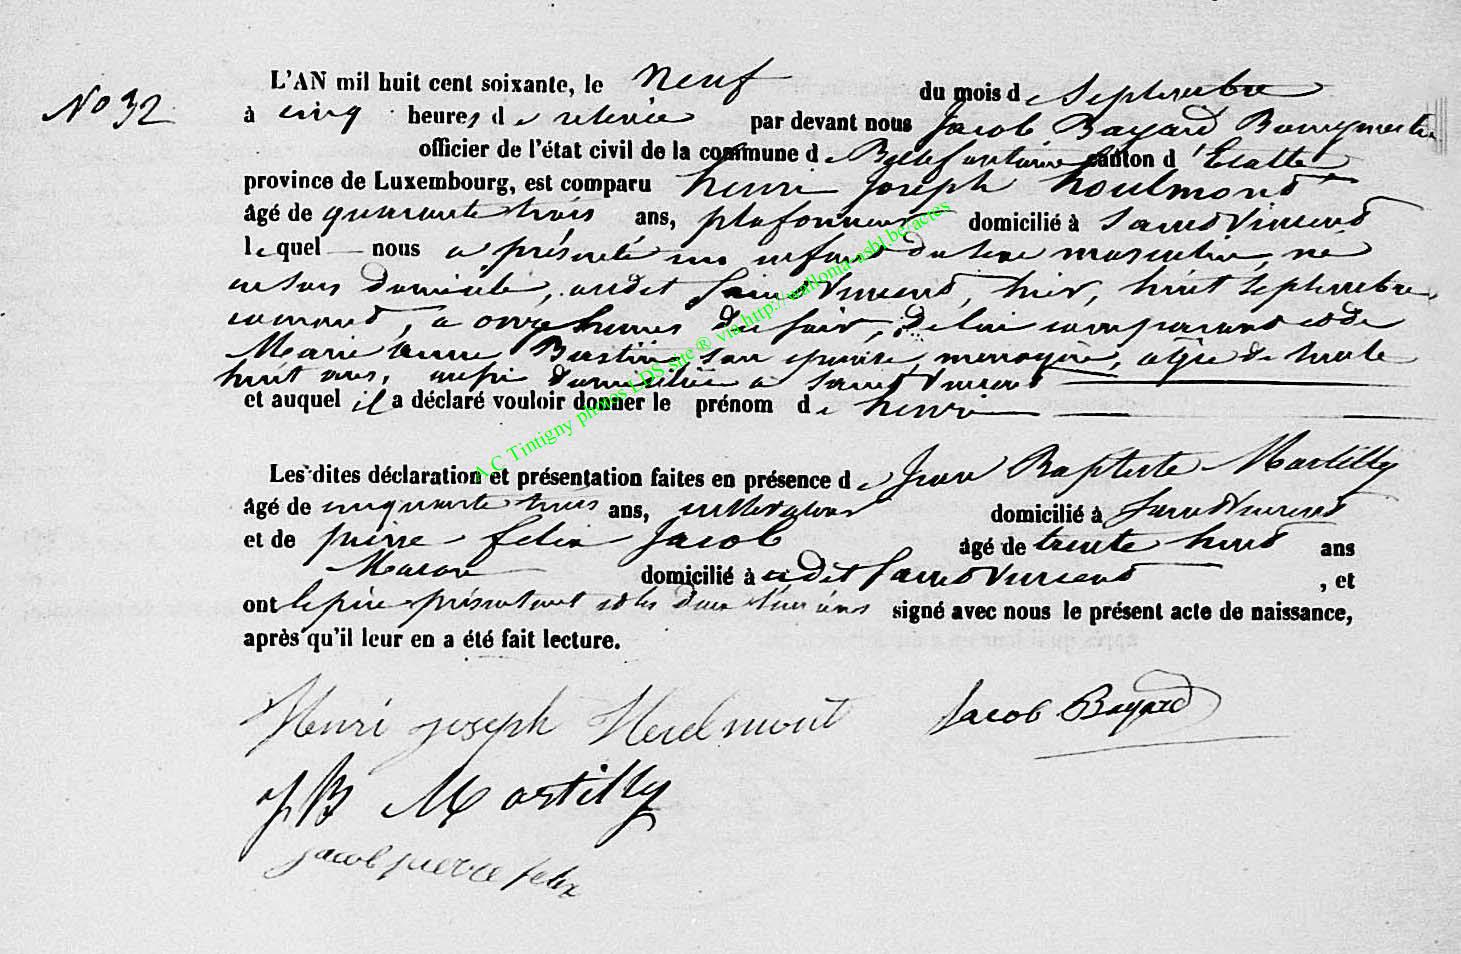 No 32
L'AN mil huit cent soixante, le neuf du mois de Septembre
à cinq heures de relevée par devant nous Jacob Bayard Bourgmestre
officier de l'état civil de la commune de Bellefontaine canton d'Etalle
province de Luxembourg, est comparu henri joseph houlmond
âgé de quarante trois ans, plafonneur domicilié à Saint Vincent
lequel nous a présenté un enfant du sexe masculin, né
en son domicile, audit Saint Vincent, hier, huit Septembre
courant, à onze heures du soir, de lui comparant et de
Marie anne Bastin son épouse, menagère, agée de trente
huit ans, aussi domiciliée à Saint Vincent
et auquel il a déclaré vouloir donner le prénom de henri
Les dites déclaration et présentation faites en présence de Jean Baptiste Martilly
âgé de cinquante trois ans, cultivateur domicilié à Saint Vincent
et de pierre felix Jacob âgé de trente huit ans
Macon domicilié à audit Saint Vincent, et
ont le père présentant et les deux témoins signé avec nous le présent acte de naissance,
après qu'il leur en a été fait lecture.
Henri joseph Jacob Bayard
JB Martilly
jacob pierre felix
A C Tintigny photos LDS site ® via http://wallonia-asbl.be/actes